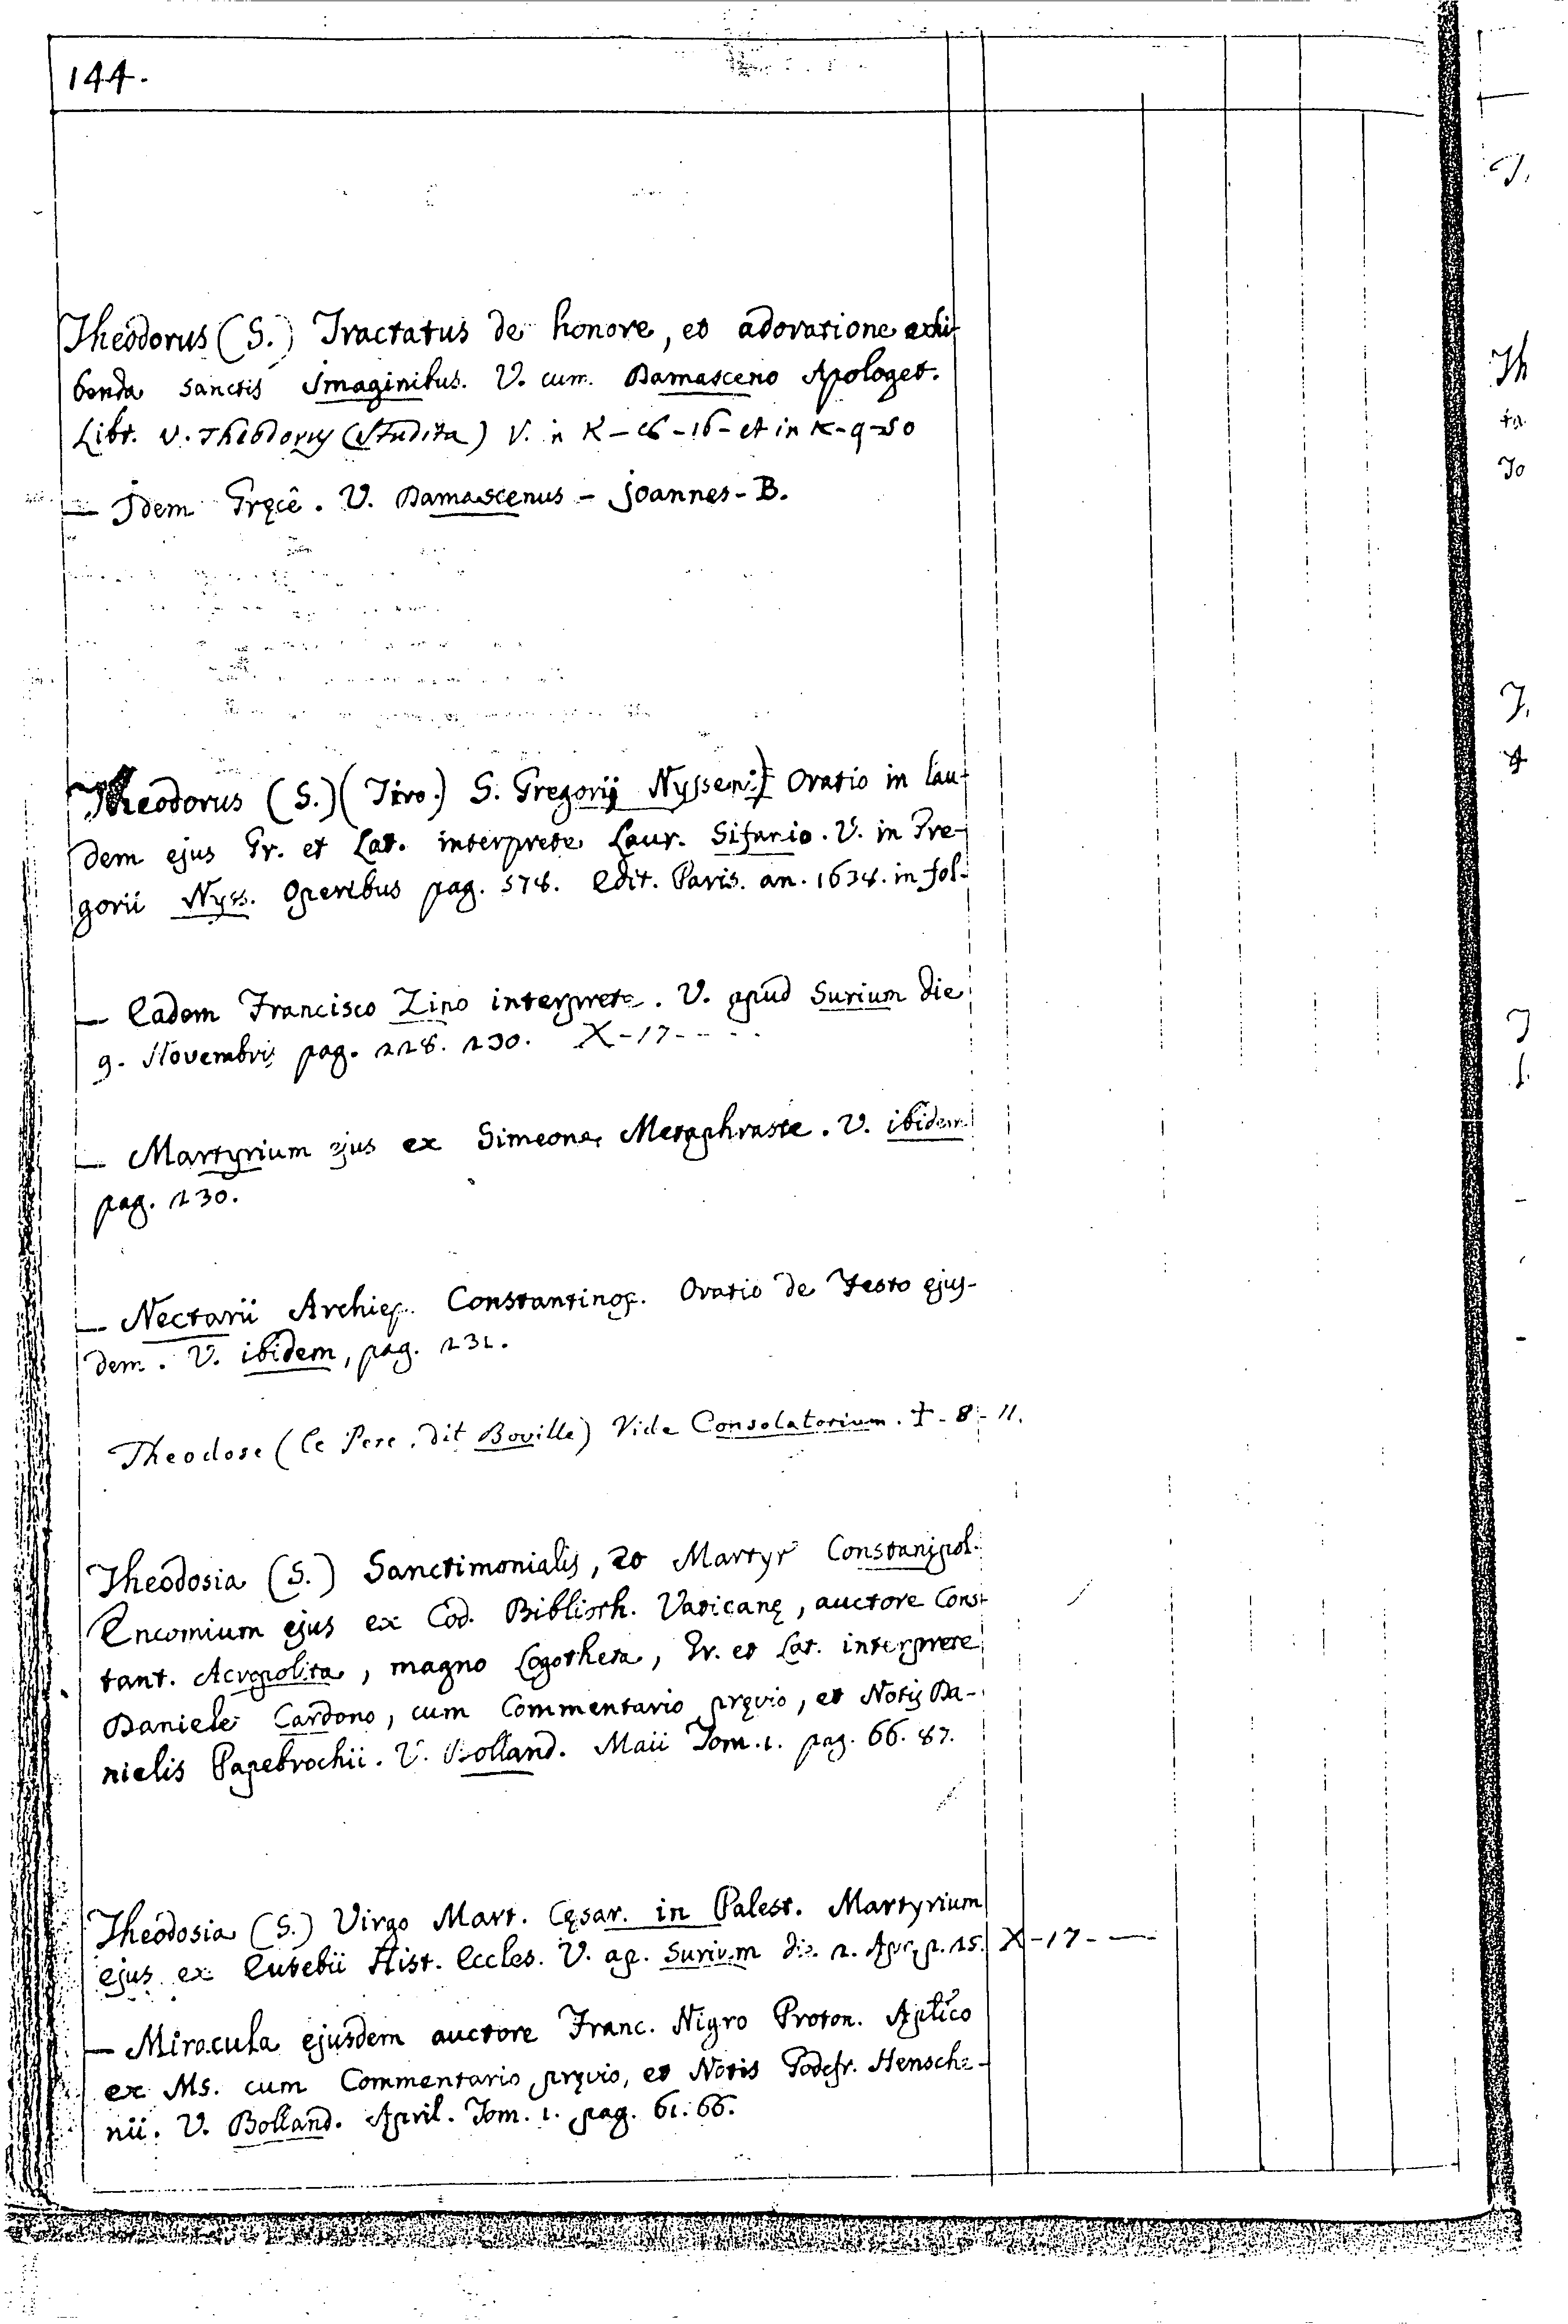 144.
Theodorus (S.) Tractatus de honore, et adoratione exhi-
benda sanctis Imaginibus. V. cum Damasceno Apologet.
Libr. V. Theodorus (Studita) V. in K-16-16- et in K-9-50
— Idem Gręcê. V. Damascenus - Joannes - B.
Theodorus (S.) (Tiro.) S. Gregorij Nysseni Oratio in lau-
dem ejus Gr. et Lat. interprete Laur. Sifanio. V. in Gre-
gorii Nyss. Operibus pag. 578. Edit. Paris. an. 1638. in fol.
— Eadem Francisco Zino interprete. V. apud Surium die
9. Novembris pag. 228. 230. X-17-
— Martyrium ejus ex Simeone Metaphraste. V. ibidem
pag. 230.
— Nectarii Archiep. Constantinop. Oratio de Festo ejus-
dem. V. ibidem, pag. 231.
Theodose (le Pere, dit Boville) Vide Consolatorium. I-8-11.
Theodosia (S.) Sanctimonialis, et Martyr Constanipol.
Encomium ejus ex Cod. Biblioth. Vaticanę, auctore Cons-
tant. Acropolita, magno Logotheta, Gr. et Lat. interprete
Daniele Cardono, cum Commentario pręvio, et Notis Da-
nielis Papebrochii. V. Bolland. Maii Tom. 1. pag. 66. 87.
Theodosia (S.) Virgo Mart. Cęsar. in Palest. Martyrium
ejus ex Eusebii Hist. Eccles. V. ap. Surium die 2. Apr. p. 25. X-17-
— Miracula ejusdem auctore Franc. Nigro Proton. Aptico
ex Ms. cum Commentario pręvio, et Notis Godefr. Hensche-
nii. V. Bolland. April. Tom. 1. pag. 61. 66.